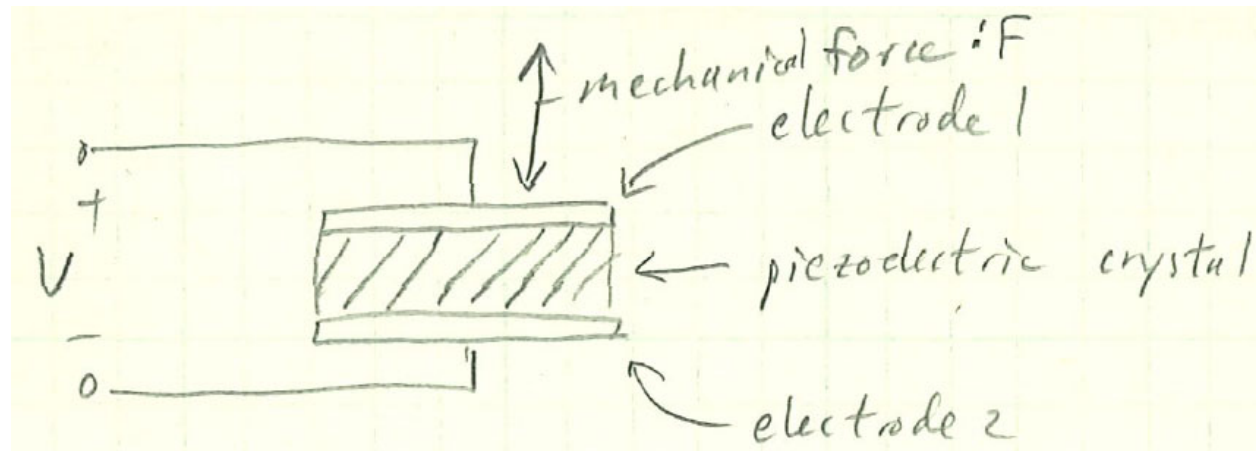 mechanical force : F
electrode 1
+
V
piezoelectric crystal
-
electrode 2